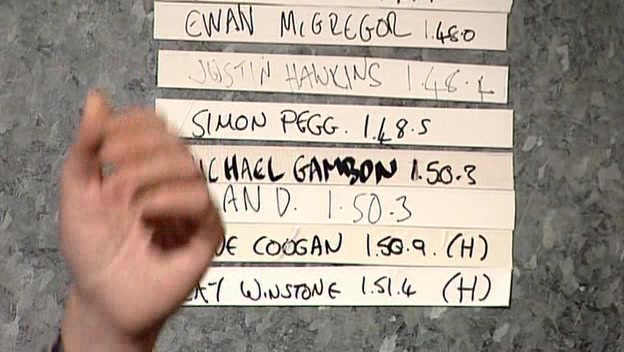 EWAN McGREGOR 1.48.0
JUSTIN HAWKINS 1.48.4
SIMON PEGG. 1.48.5
MICHAEL GAMBON 1.50.3
AND. 1.50.3
COOGAN 1.50.9. (H)
WINSTONE 1.51.4 (H)